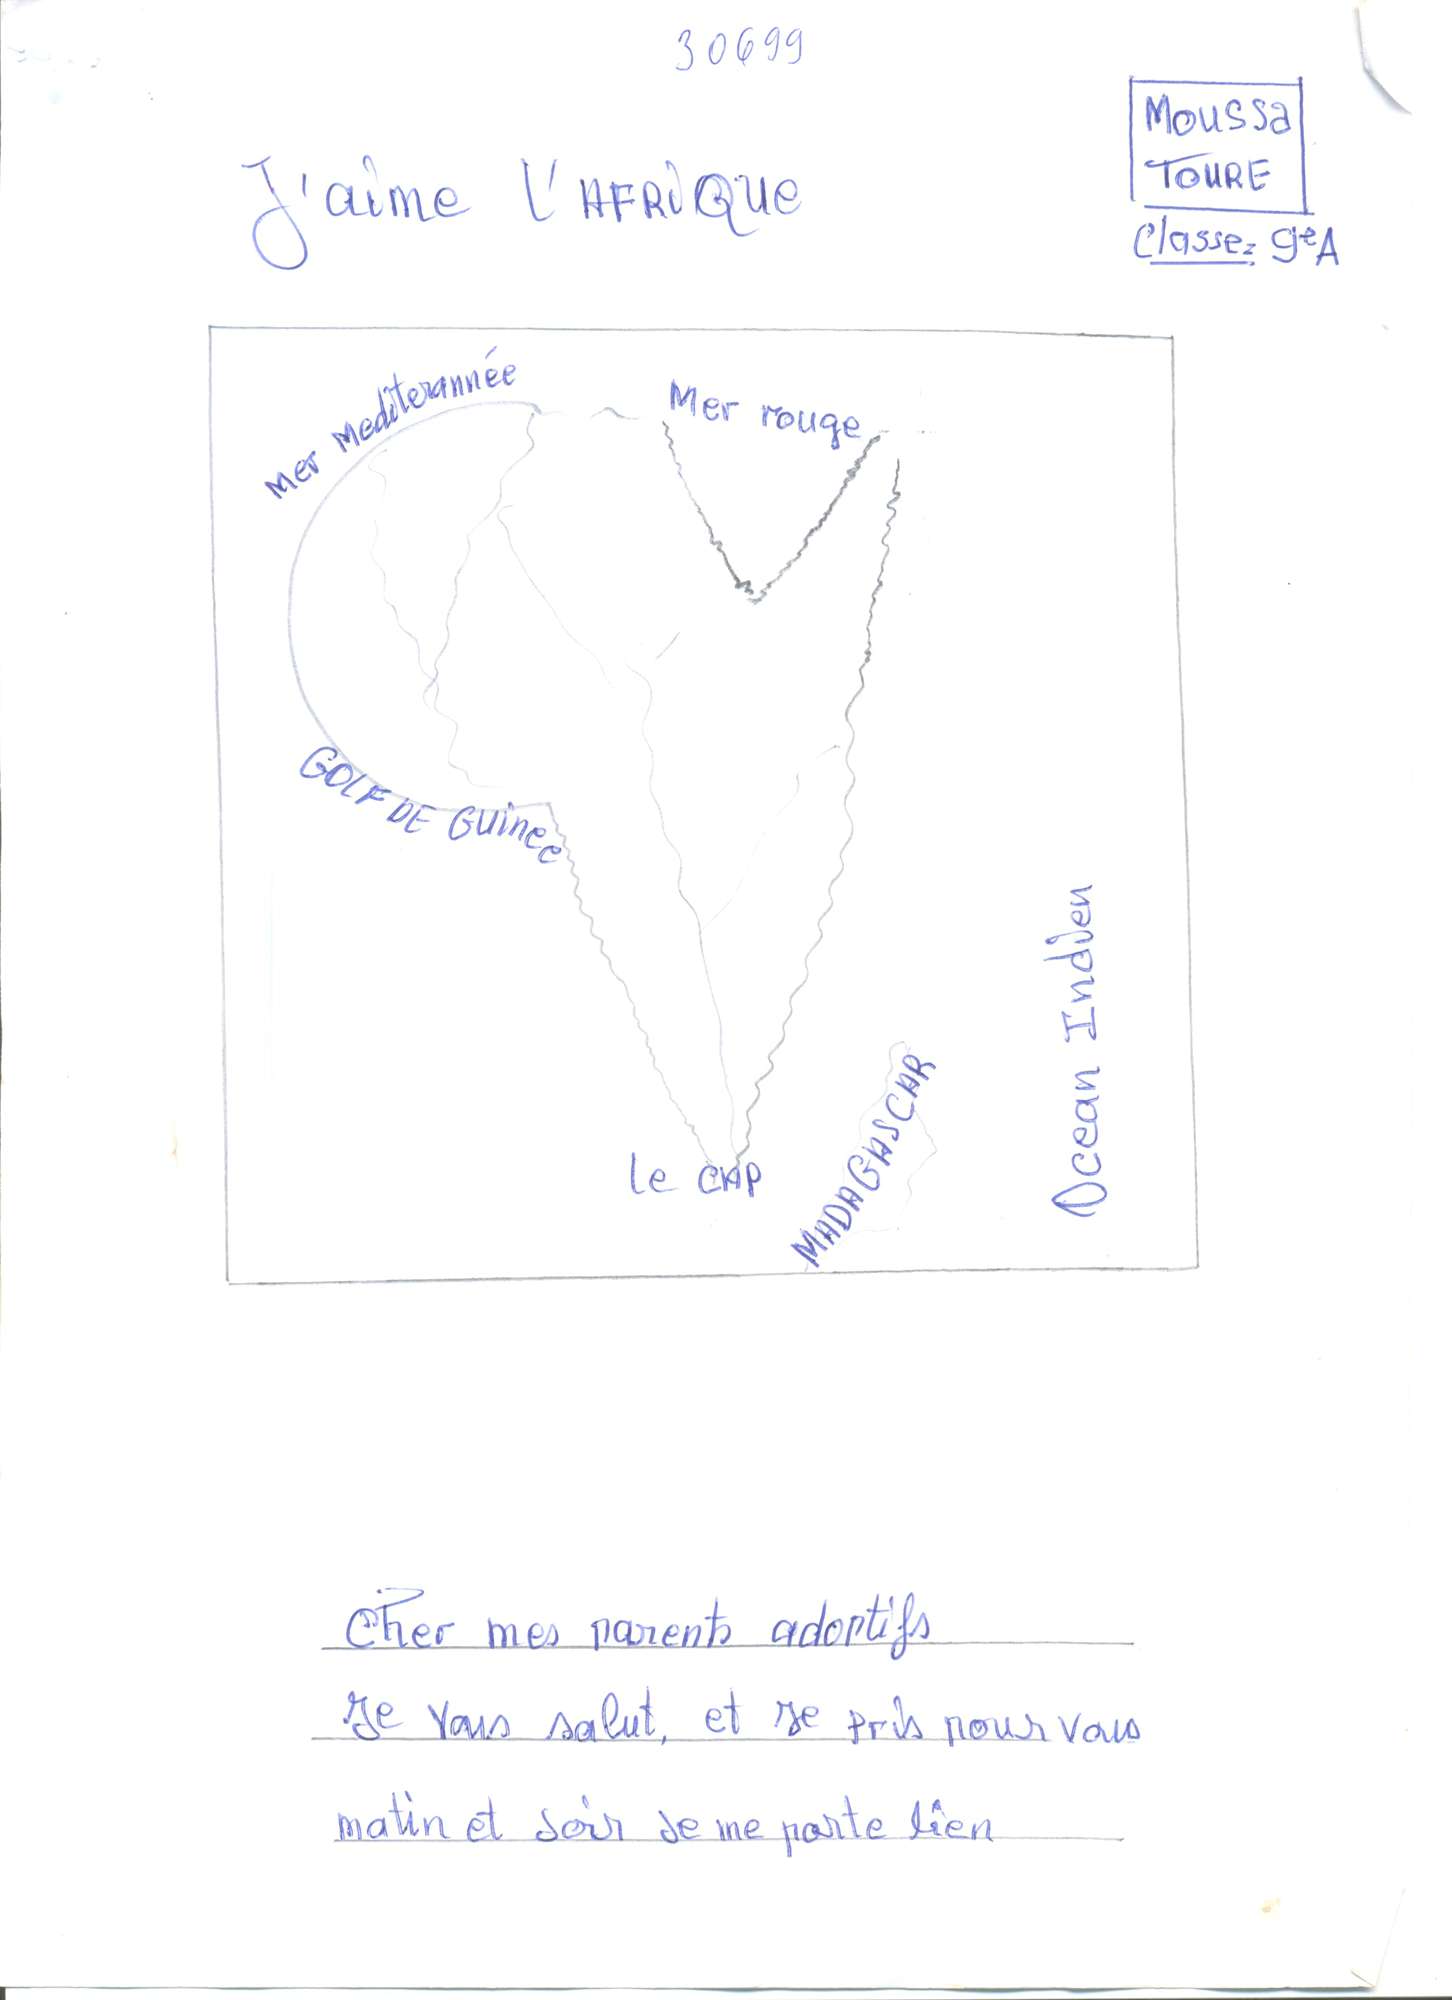 30699
Moussa
TOURE
Classe: 9e A
J'aime l'AFRiQUE
Mer Mediterannée
Mer rouge
GOLF DE GUinee
Ocean Indien
le CAP
MADAGASCAR
Cher mes parents adoptifs
Je vous salut, et je pris pour vous
matin et soir je me porte bien